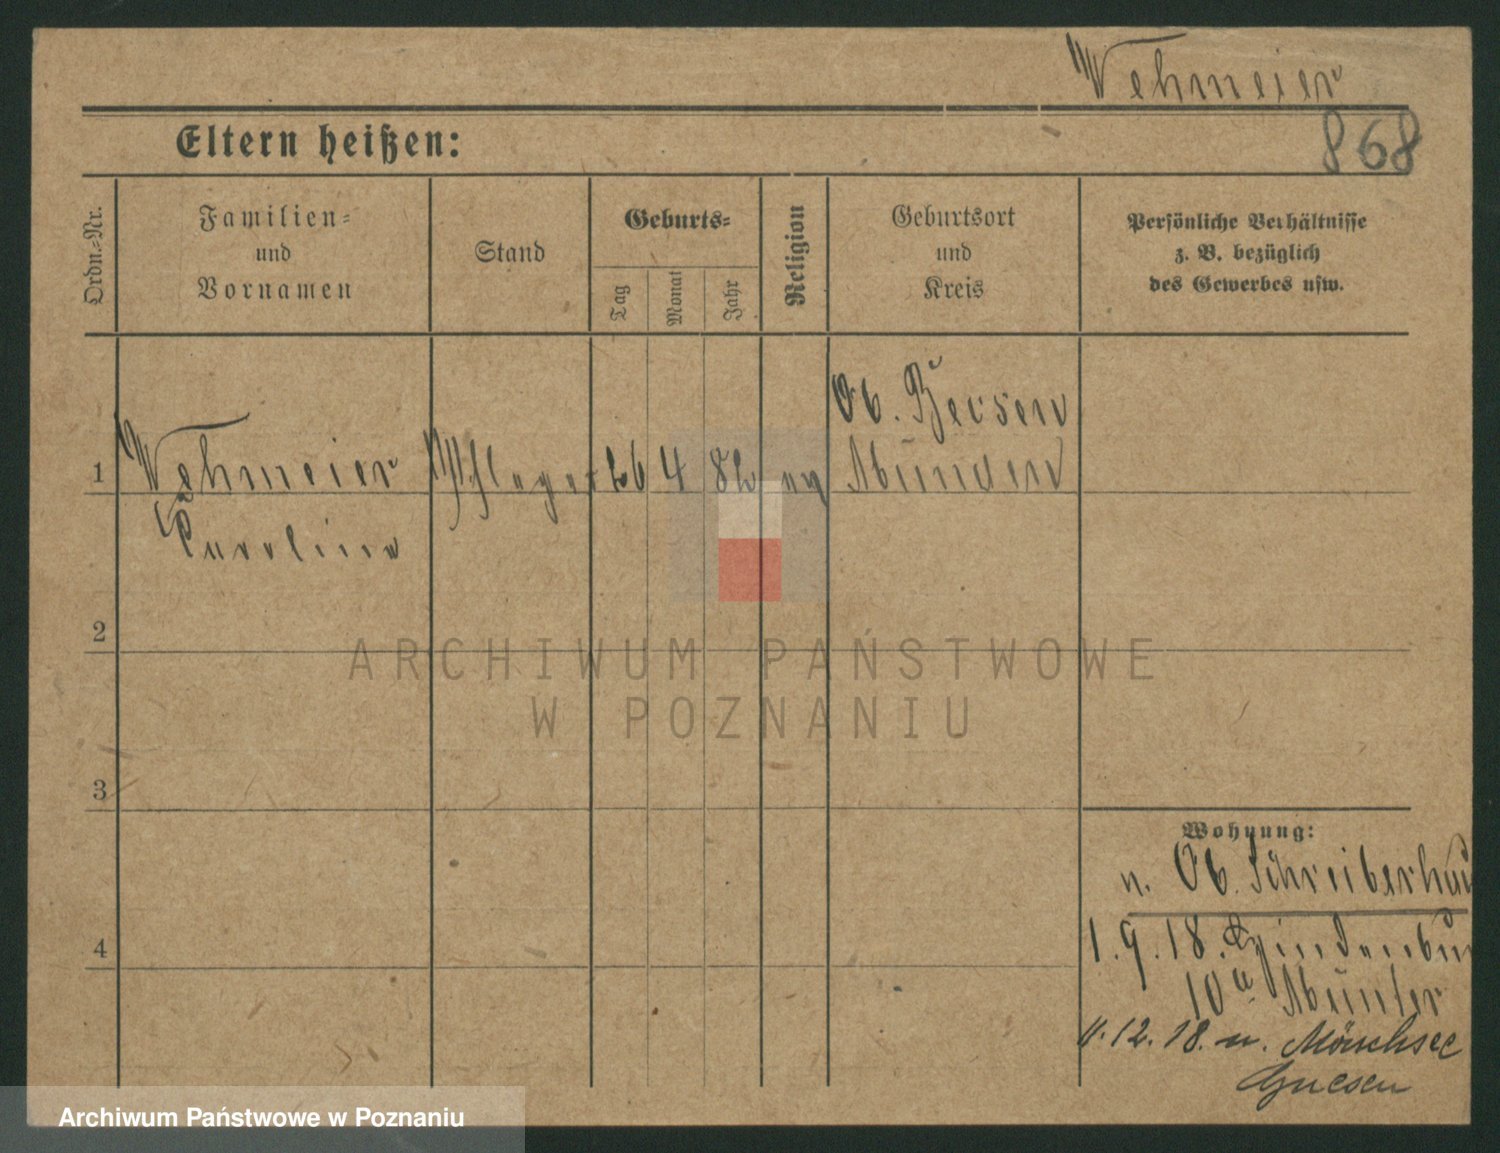 Wehmeier
868
Eltern heißen:
Ordn.-Nr.
Familien-
und
Vornamen
Stand
Geburts-
Tag
Monat
Jahr
Religion
Geburtsort
und
Kreis
Persönliche Verhältnisse
z. B. bezüglich
des Gewerbes usw.
Ob. Becsen
1 Wehmeier 26 4 82 ev Münden
Caroline
2
3
4
Wohnung:
n. Ob. Schreiberhau
1.9.18.
10a
11.12.18. n. Mönchsee
Gnesen
ARCHIWUM PAŃSTWOWE
W POZNANIU
Archiwum Państwowe w Poznaniu